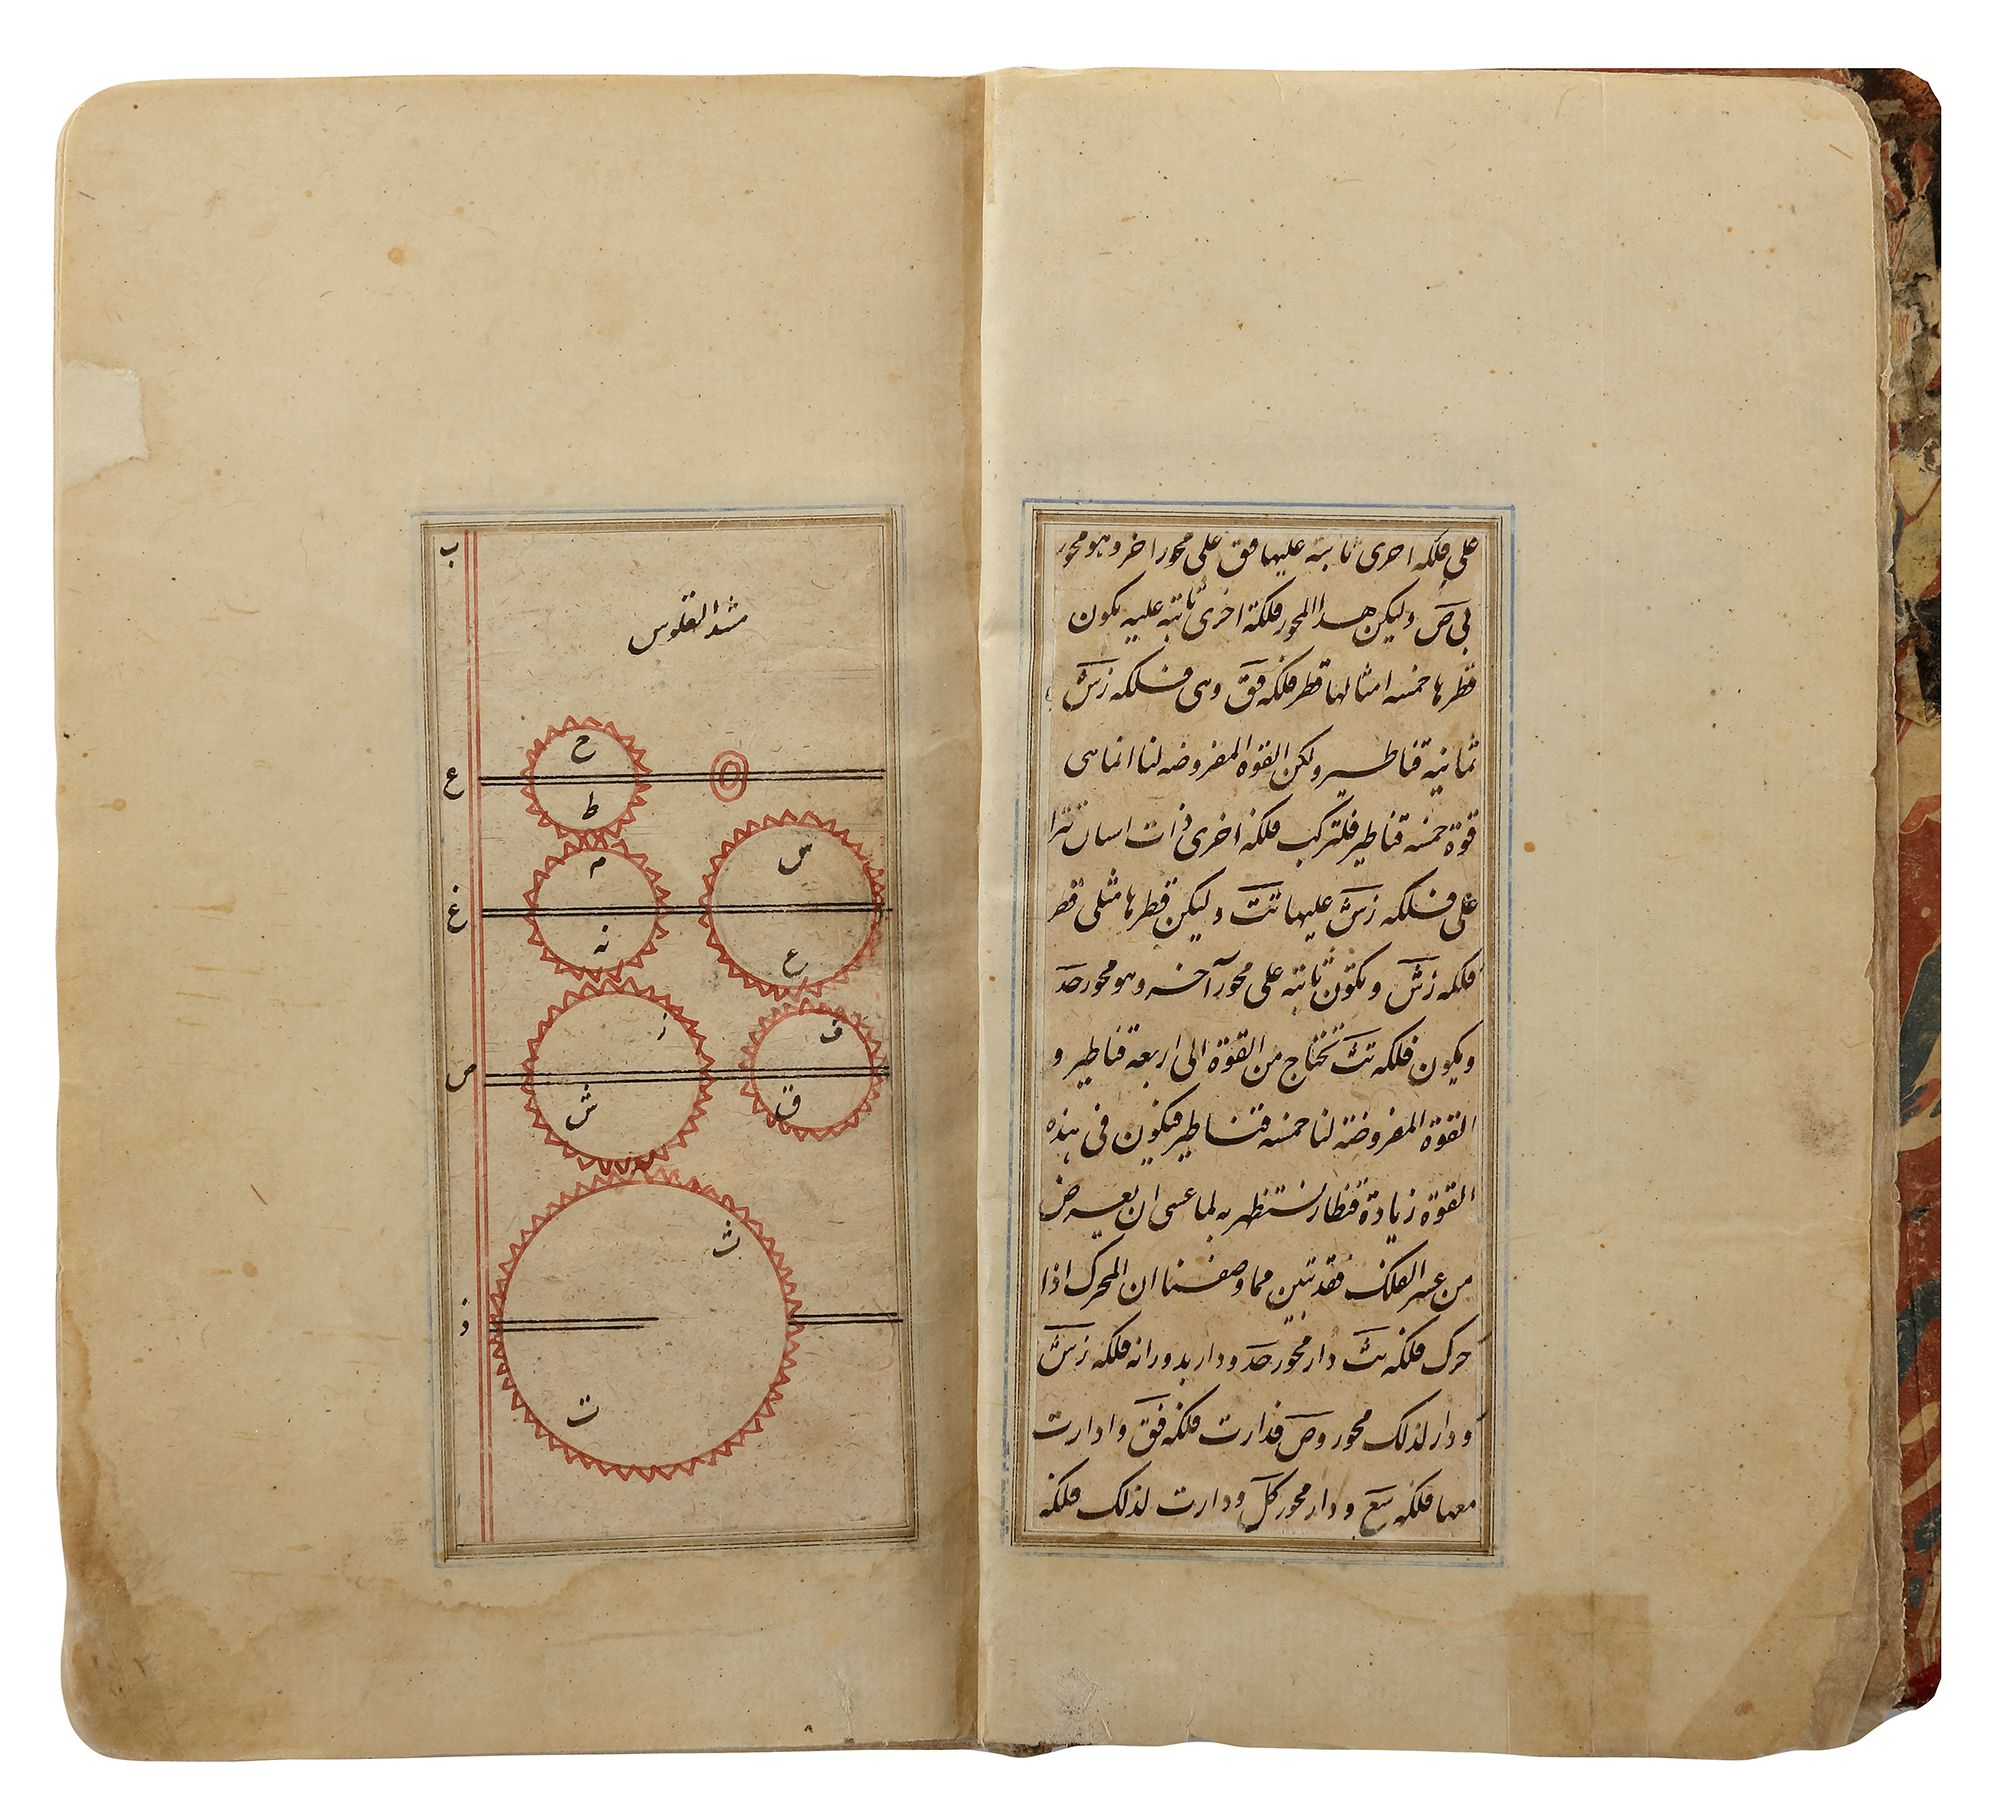 على فلكه اخرى ثابتة عليها فق على محور اخر وهو محور
بى ص وليكن هذا المحور فلكة اخرى ثابتة عليه يكون
قطرها خمسه امثالها قطر فلكه فق وهى فلكه زش
ثمانية قناطير ولكن القوة المفروضه لنا انما هى
قوة خمسه قناطير فلتركب فلكة اخرى ذات اسنان
على فلكه زش عليها تث وليكن قطرها مثلى قطر
فلكه زش وتكون ثابتة على محور آخر وهو محور خذ
ويكون فلكه تث تحتاج من القوة الى اربعة قناطير و
القوة المفروضة لنا خمسه قناطير فيكون فى هذه
القوة زيادة قنطار نستظهر به لما عسى ان يعرض
من عسر الفلك فقد تبين مما وصفنا ان المحرك اذا
حرك فلكه تث دار محور خذ ودار بدورانه فلكه زش
ودار لذلك محور وص فدارت فلكه فق وادارت
معها فلكه سع ودار محور كل ودارت لذلك فلكة
ب
مشد القلوس
ح
ع
ط
م
س
غ
نه
ع
ز
ف
ص
ش
ق
ث
ذ
ت